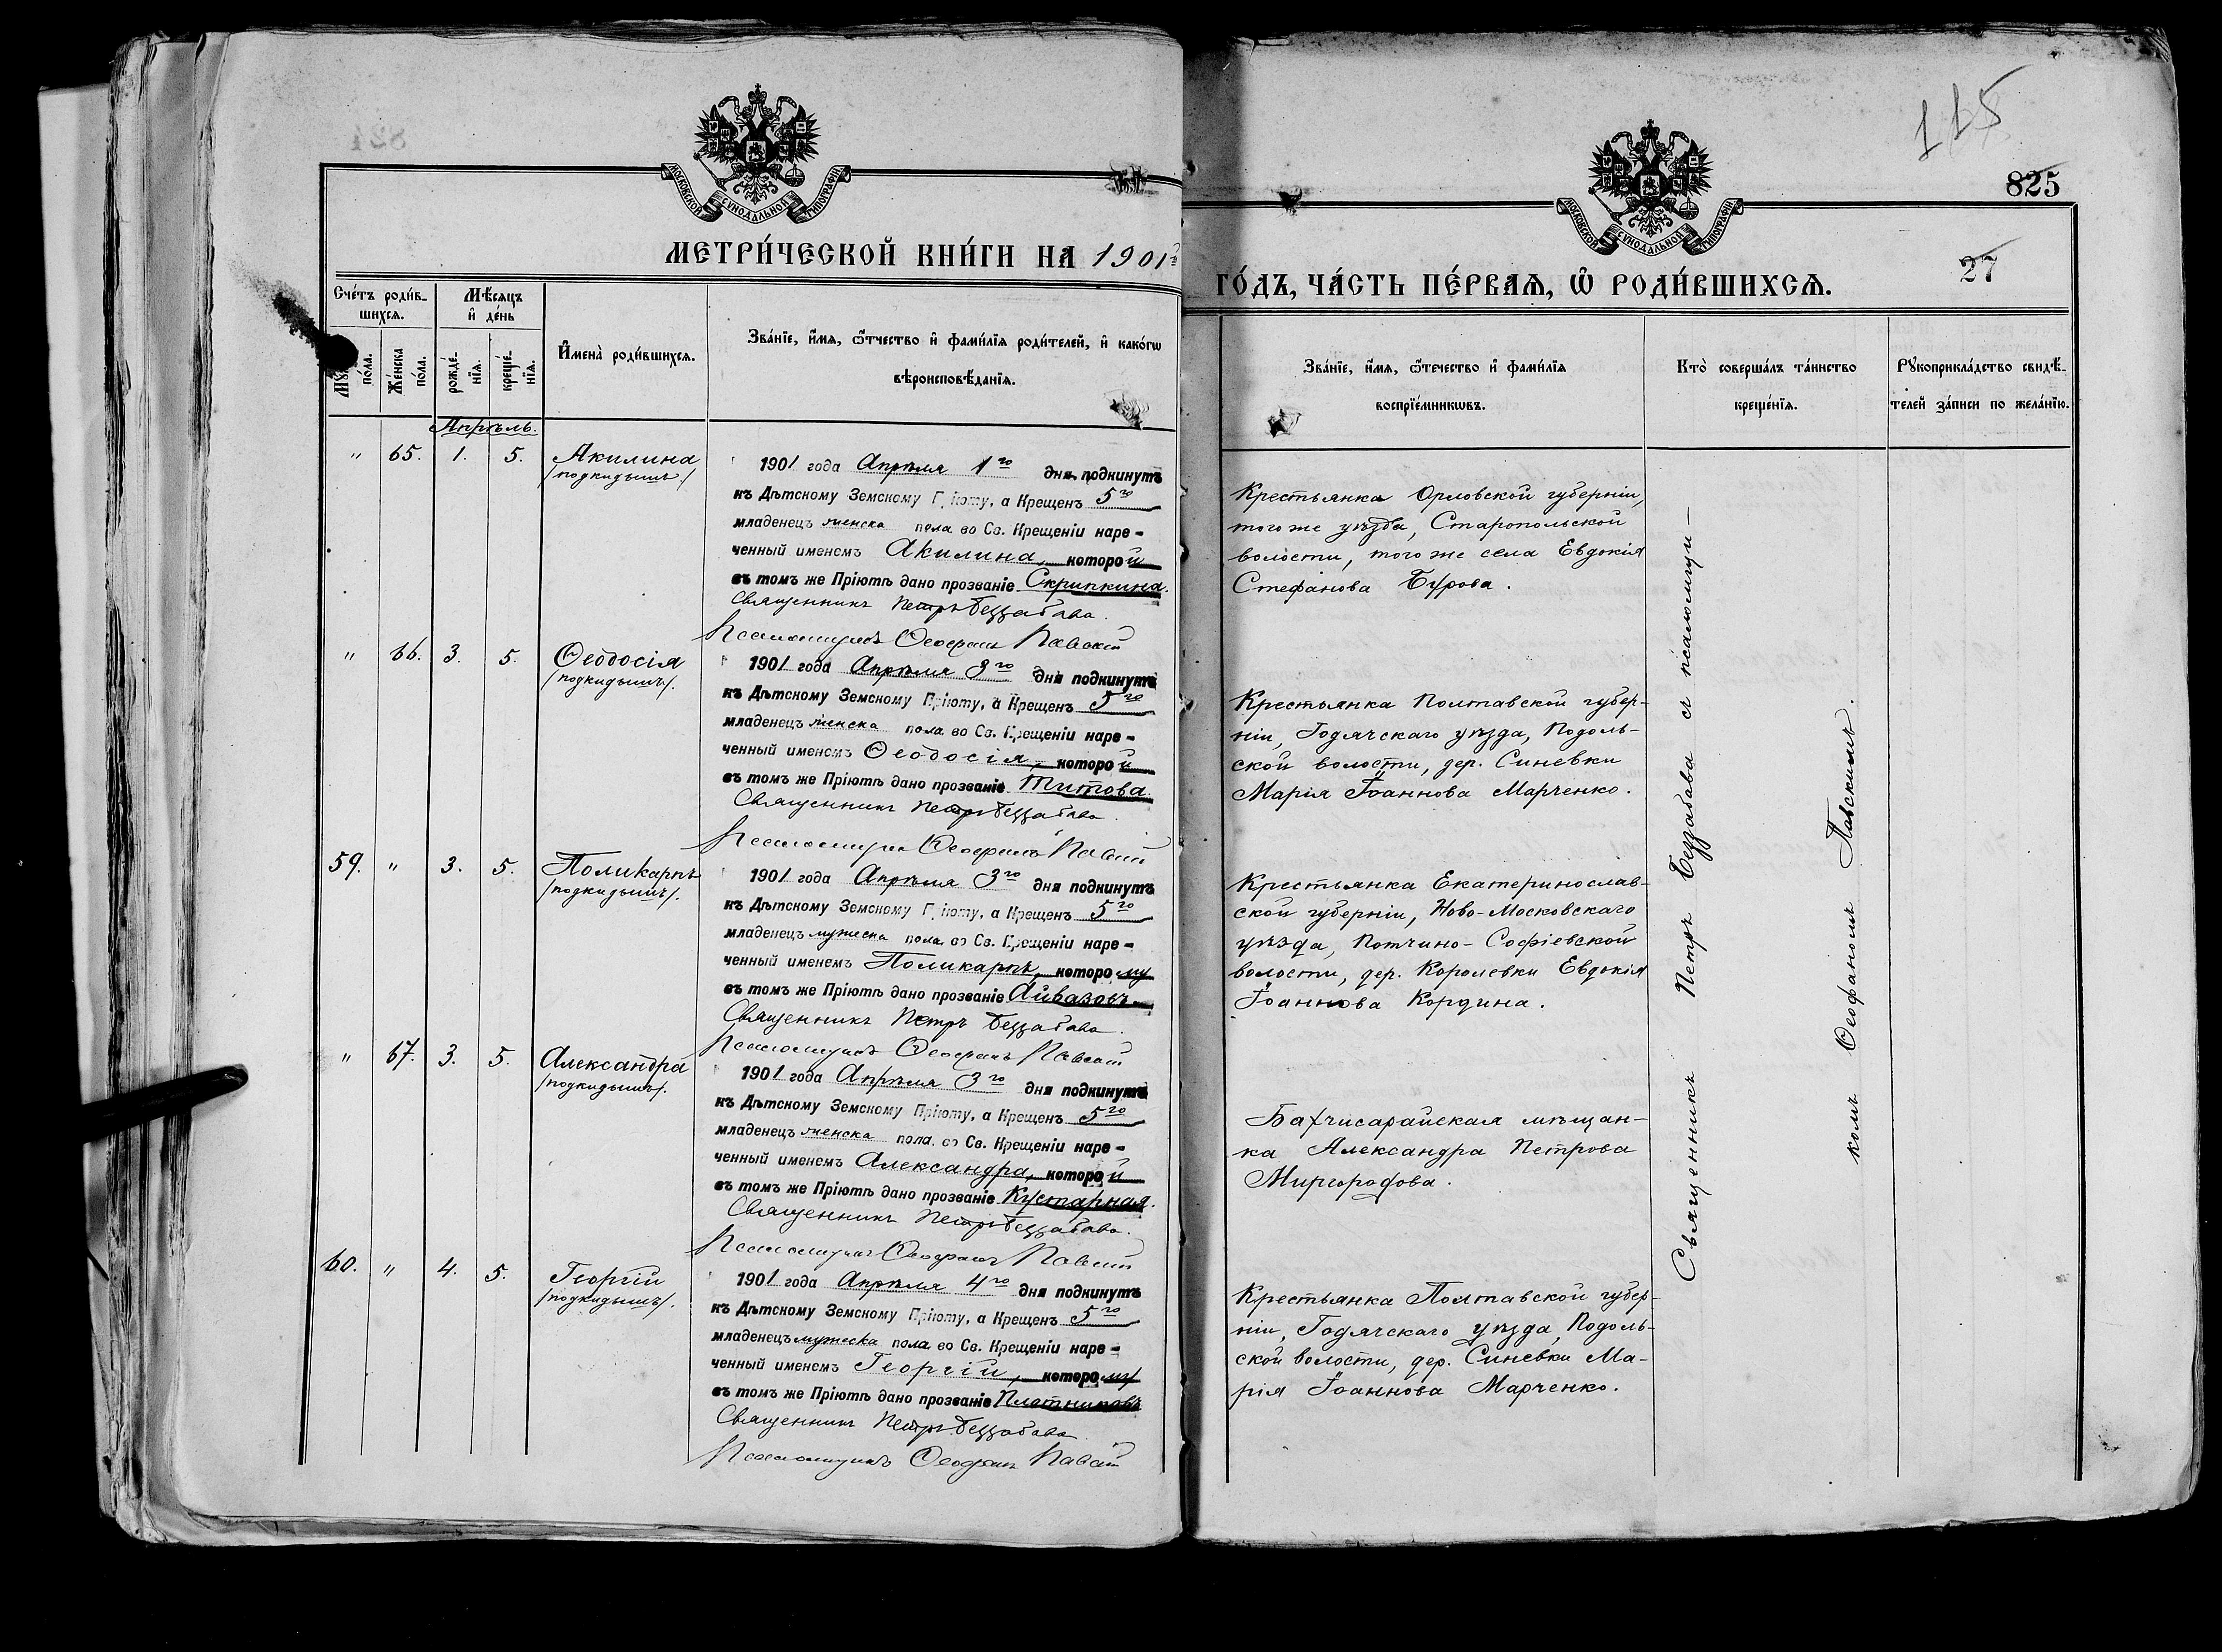 115
825
27
МОСКОВСКОЙ СУНОДАЛЬНОЙ ТИПОГРАФІИ
МОСКОВСКОЙ СУНОДАЛЬНОЙ ТИПОГРАФІИ
МЕТРИ́ЧЕСКОЙ КНИ́ГИ НА 1901й
ГО́ДЪ, ЧА́СТЬ ПЕ́РВАѦ, Ѡ РОДИ́ВШИХСѦ.
Сче́тъ роди́в-
шихсѧ.
по́ла.
Же́нска по́ла.
Мѣ́сѧцъ
и де́нь
рожде́-
нїѧ.
креще́-
нїѧ.
И҆мена̀ роди́вшихсѧ.
Зва́нїе, и҆́мѧ, ѻ҆́тчество и҆ фами́лїѧ роди́телей, и҆ како́гѡ
вѣроисповѣ́данїѧ.
Зва́нїе, и҆́мѧ, ѻ҆те́чество и҆ фами́лїѧ
воспрїе́мникѡвъ.
Кто̀ соверша́лъ та́инство
креще́нїѧ.
Рꙋкоприкла́дство свидѣ́-
телей за́писи по жела́нїю.
Апрѣль.
" 65. 1. 5. Акилина
/подкидышъ/
1901 года Апрѣля 1го дня подкинутъ
къ Дѣтскому Земскому Пріюту, а Крещенъ 5го
младенецъ женска пола во Св. Крещеніи наре-
ченный именемъ Акилина, которой
въ томъ же Пріютѣ дано прозваніе Скрипкина.
Священникъ Петръ Беззабава.
Псаломщикъ Ѳеофанъ Павскій
Крестьянка Орловской губерніи,
того же уѣзда, Старопольской
волости, того же села Евдокія
Стефанова Бурова.
" 66. 3. 5. Ѳеодосія
/подкидышъ/.
1901 года Апрѣля 3го дня подкинутъ
къ Дѣтскому Земскому Пріюту, а Крещенъ 5го
младенецъ женска пола во Св. Крещеніи наре-
ченный именемъ Ѳеодосія, которой
въ томъ же Пріютѣ дано прозваніе Титова.
Священникъ Петръ Беззабава.
Псаломщикъ Ѳеофанъ Павскій
Крестьянка Полтавской губер-
ніи, Годячскаго уѣзда, Подоль-
ской волости, дер. Синевки
Марія Іоаннова Марченко.
59. " 3. 5. Поликарпъ
/подкидышъ/.
1901 года Апрѣля 3го дня подкинутъ
къ Дѣтскому Земскому Пріюту, а Крещенъ 5го
младенецъ мужеска пола во Св. Крещеніи наре-
ченный именемъ Поликарпъ, которому
въ томъ же Пріютѣ дано прозваніе Айвазовъ.
Священникъ Петръ Беззабава.
Псаломщикъ Ѳеофанъ Павскій
Крестьянка Екатеринослав-
ской губерніи, Ново-Московскаго
уѣзда, Попчино-Софіевской
волости, дер. Королевки Евдокія
Іоаннова Кордина.
" 67. 3. 5. Александра
/подкидышъ/.
1901 года Апрѣля 3го дня подкинутъ
къ Дѣтскому Земскому Пріюту, а Крещенъ 5го
младенецъ женска пола во Св. Крещеніи наре-
ченный именемъ Александра, которой
въ томъ же Пріютѣ дано прозваніе Кустарная.
Священникъ Петръ Беззабава.
Псаломщикъ Ѳеофанъ Павскій
Бахчисарайская мѣщан-
ка Александра Петрова
Миргородова.
60. " 4. 5. Георгій
/подкидышъ/.
1901 года Апрѣля 4го дня подкинутъ
къ Дѣтскому Земскому Пріюту, а Крещенъ 5го
младенецъ мужеска пола во Св. Крещеніи наре-
ченный именемъ Георгій, которому
въ томъ же Пріютѣ дано прозваніе Плотниковъ
Священникъ Петръ Беззабава
Псаломщикъ Ѳеофанъ Павскій
Крестьянка Полтавской губер-
ніи, Годячскаго уѣзда, Подоль-
ской волости, дер. Синевки Ма-
рія Іоаннова Марченко.
Священникъ Петръ Беззабава съ псаломщи-
комъ Ѳеофаномъ Павскимъ.